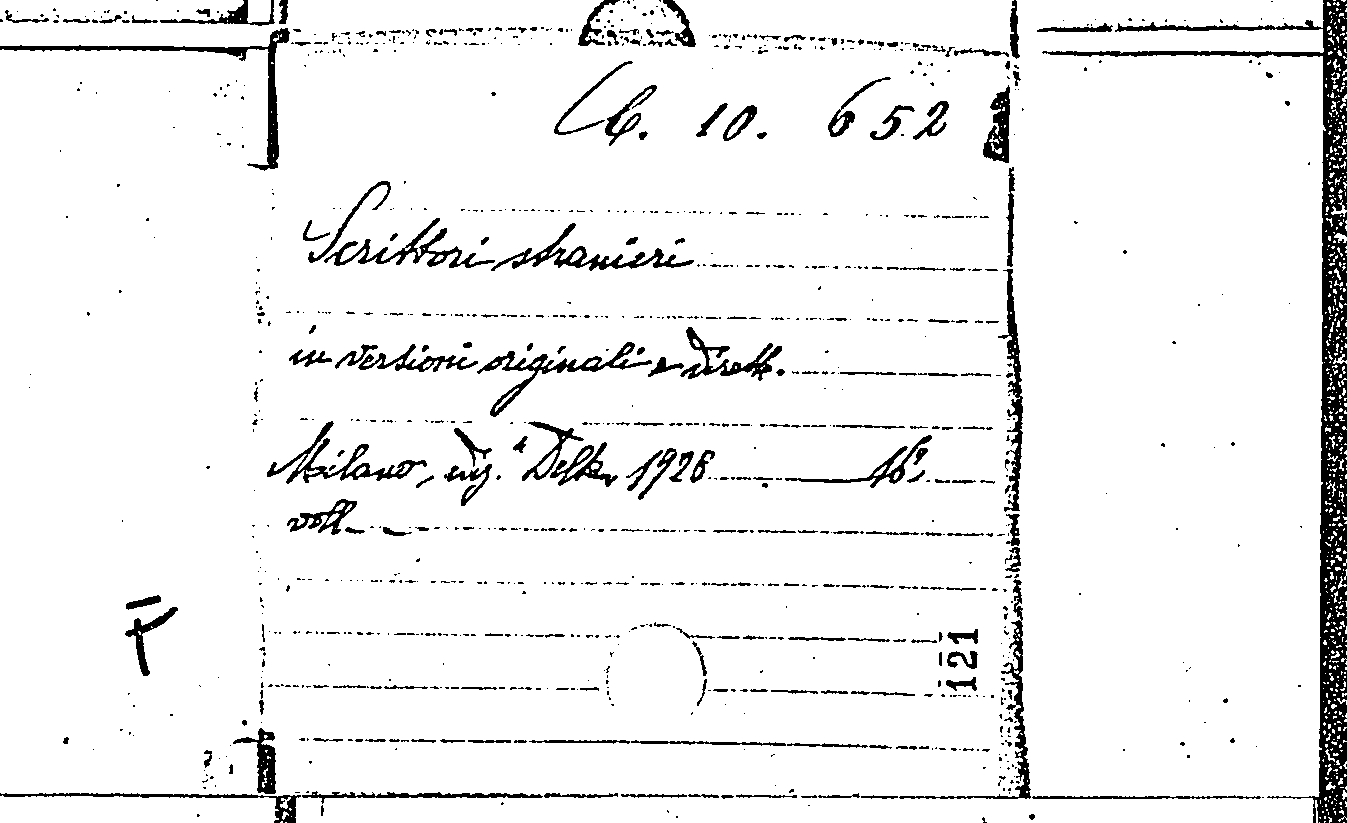 10. 652
Scrittori stranieri
in versioni originali e dirett.
Milano, "Delta" 1926 16°
voll.
121